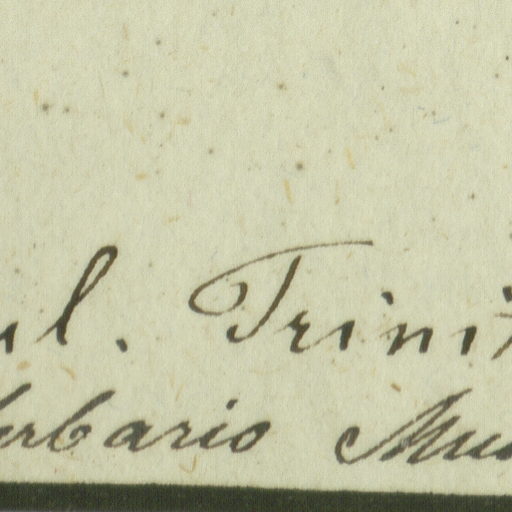 ul. Trinit
erbario Mus